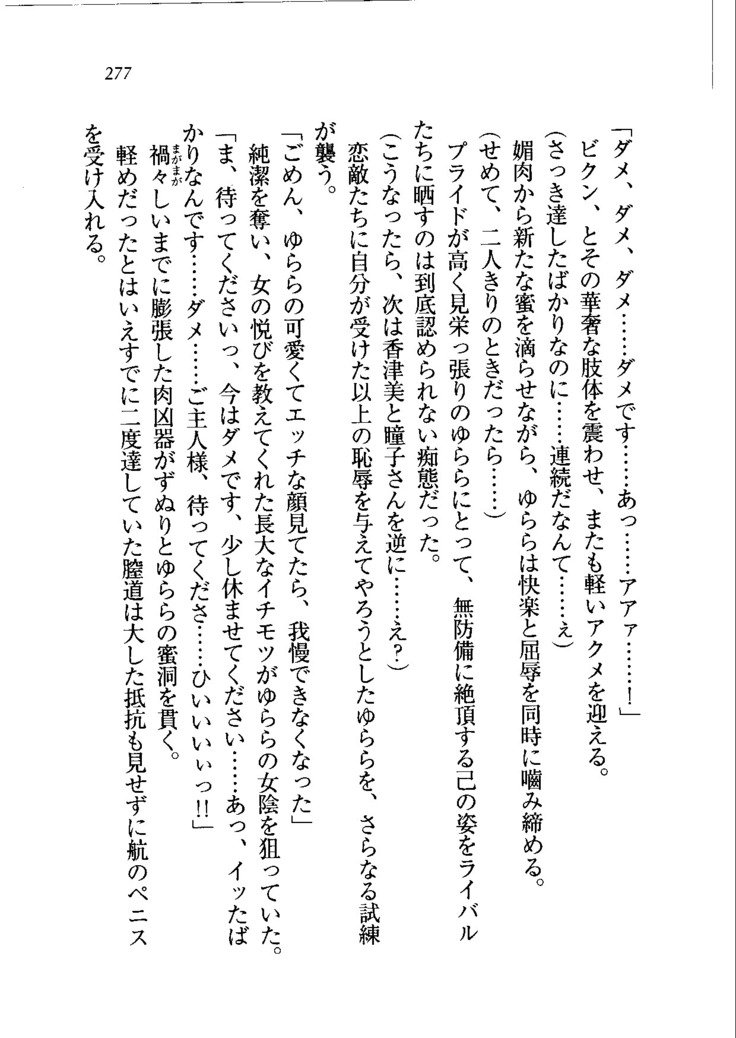 277
「ダメ、ダメ、ダメ……ダメです……あっ……アアァ……！」
ビクン、とその華奢な肢体を震わせ、またも軽いアクメを迎える。
（さっき達したばかりなのに……連続だなんて……ぇ）
媚肉から新たな蜜を滴らせながら、ゆららは快楽と屈辱を同時に嚙み締める。
（せめて、二人きりのときだったら……）
プライドが高く見栄っ張りのゆららにとって、無防備に絶頂する己の姿をライバル
たちに晒すのは到底認められない痴態だった。
（こうなったら、次は香津美と瞳子さんを逆に……え？）
恋敵たちに自分が受けた以上の恥辱を与えてやろうとしたゆららを、さらなる試練
が襲う。
「ごめん、ゆららの可愛くてエッチな顔見てたら、我慢できなくなった」
純潔を奪い、女の悦びを教えてくれた長大なイチモツがゆららの女陰を狙っていた。
「ま、待ってくださいっ、今はダメです、少し休ませてください……あっ、イッたば
かりなんです……ダメ……ご主人様、待ってくださ……ひいいいぃっ!!」
禍々しいまでに膨張した肉凶器がずぬりとゆららの蜜洞を貫く。
まがまが
軽めだったとはいえすでに二度達していた膣道は大した抵抗も見せずに航のペニス
を受け入れる。